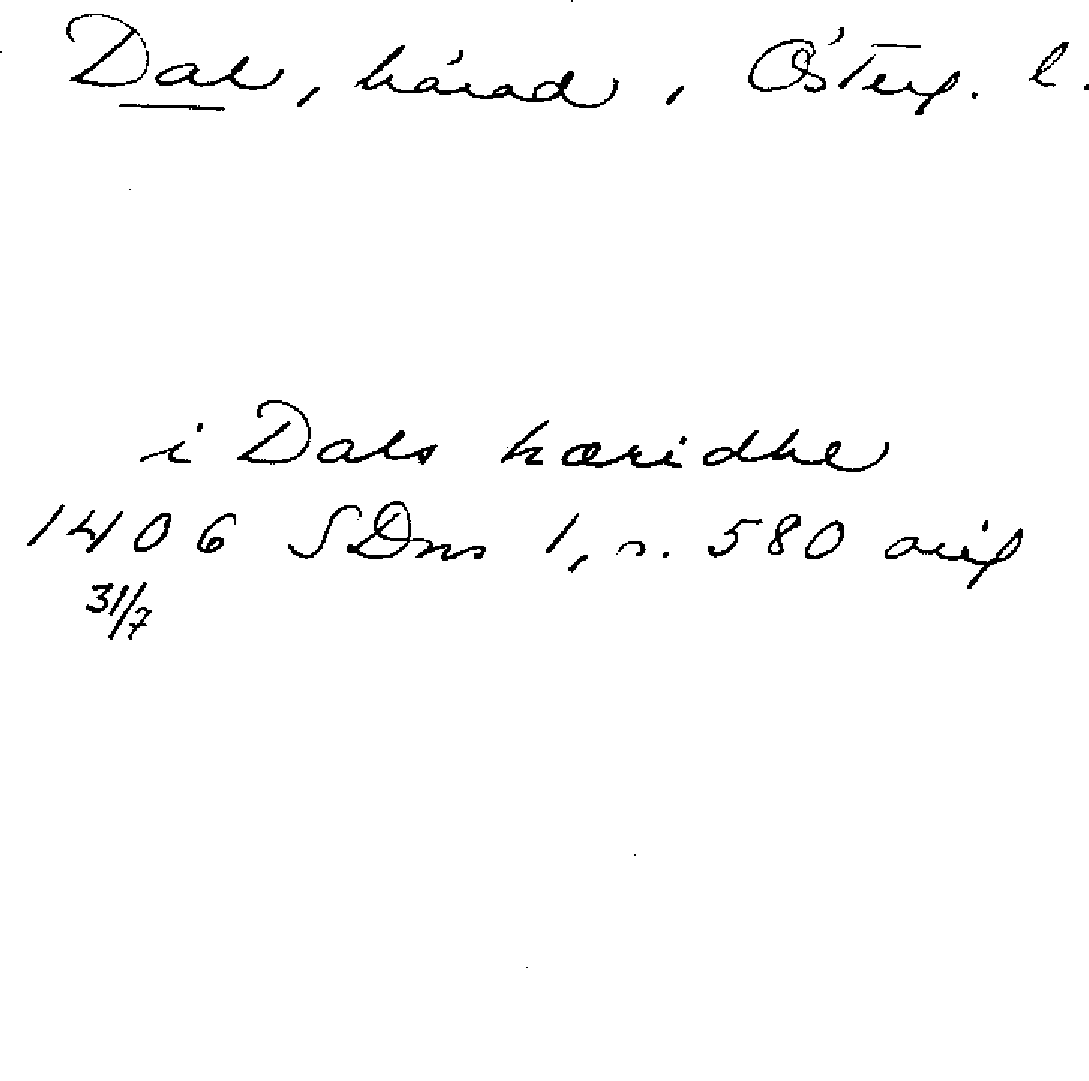 Dal, härad, Österg. l.
i Dals hæridhe
1406 SDns 1, s. 580 orig
31/7